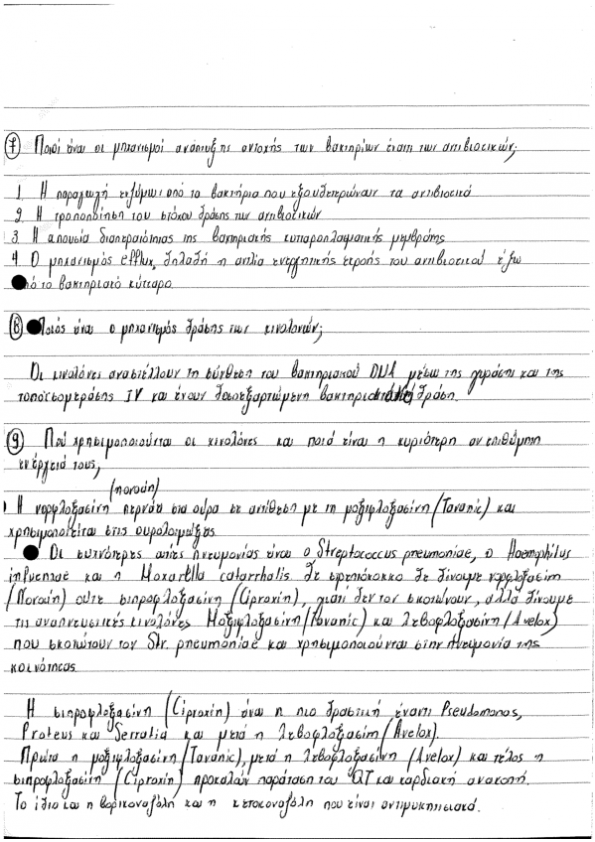 7 Ποιοί είναι οι μηχανισμοί ανάπτυξης αντοχής των βακτηρίων έναντι των αντιβιοτικών;
1. Η παραγωγή ενζύμων από το βακτήριο που εξουδετερώνουν τα αντιβιοτικά
2. Η τροποποίηση του στόχου δράσης των αντιβιοτικών
3. Η απουσία διαπερατότητας της βακτηριακής κυτταροπλασματικής μεμβράνης
4. Ο μηχανισμός efflux, δηλαδή η αντλία ενεργητικής εκροής του αντιβιοτικού έξω
από το βακτηριακό κύτταρο
8 Ποιός είναι ο μηχανισμός δράσης των κινολονών;
Οι κινολόνες αναστέλλουν τη σύνθεση του βακτηριακού DNA μέσω της γυράσης και της
τοποϊσομεράσης IV και έχουν δοσοεξαρτώμενη δράση.
9 Πού χρησιμοποιούνται οι κινολόνες και ποιά είναι η κυριότερη ανεπιθύμητη
ενέργειά τους;
(Noroxin)
Η νορφλοξασίνη περνάει στα ούρα σε αντίθεση με τη μοξιφλοξασίνη (Tavanic) και
χρησιμοποιείται στις ουρολοιμώξεις
Οι συχνότερες αιτίες πνευμονίας είναι ο Streptococcus pneumoniae, ο Haemphilus
influenzae και η Moxarella catarrhalis. Σε στρεπτόκοκκο δε δίνουμε νορφλοξασίνη
(Noroxin) ούτε σιπροφλοξασίνη (Ciproxin), γιατί δεν τον σκοτώνουν, αλλά δίνουμε
τις αναπνευστικές κινολόνες Μοξιφλοξασίνη (Tavanic) και λεβοφλοξασίνη (Avelox)
που σκοτώνουν τον Str. pneumoniae και χρησιμοποιούνται στην πνευμονία της
κοινότητας
Η σιπροφλοξασίνη (Ciproxin) είναι η πιο δραστική έναντι Pseudomonas,
Proteus και Serratia και μετά η λεβοφλοξασίνη (Avelox).
Πρώτα η μοξιφλοξασίνη (Tavanic), μετά η λεβοφλοξασίνη (Avelox) και τέλος η
σιπροφλοξασίνη (Ciproxin) προκαλούν παράταση του QT και καρδιακή ανακοπή.
Το ίδιο και η βορικοναζόλη και η κετοκοναζόλη που είναι αντιμυκητιασικά.